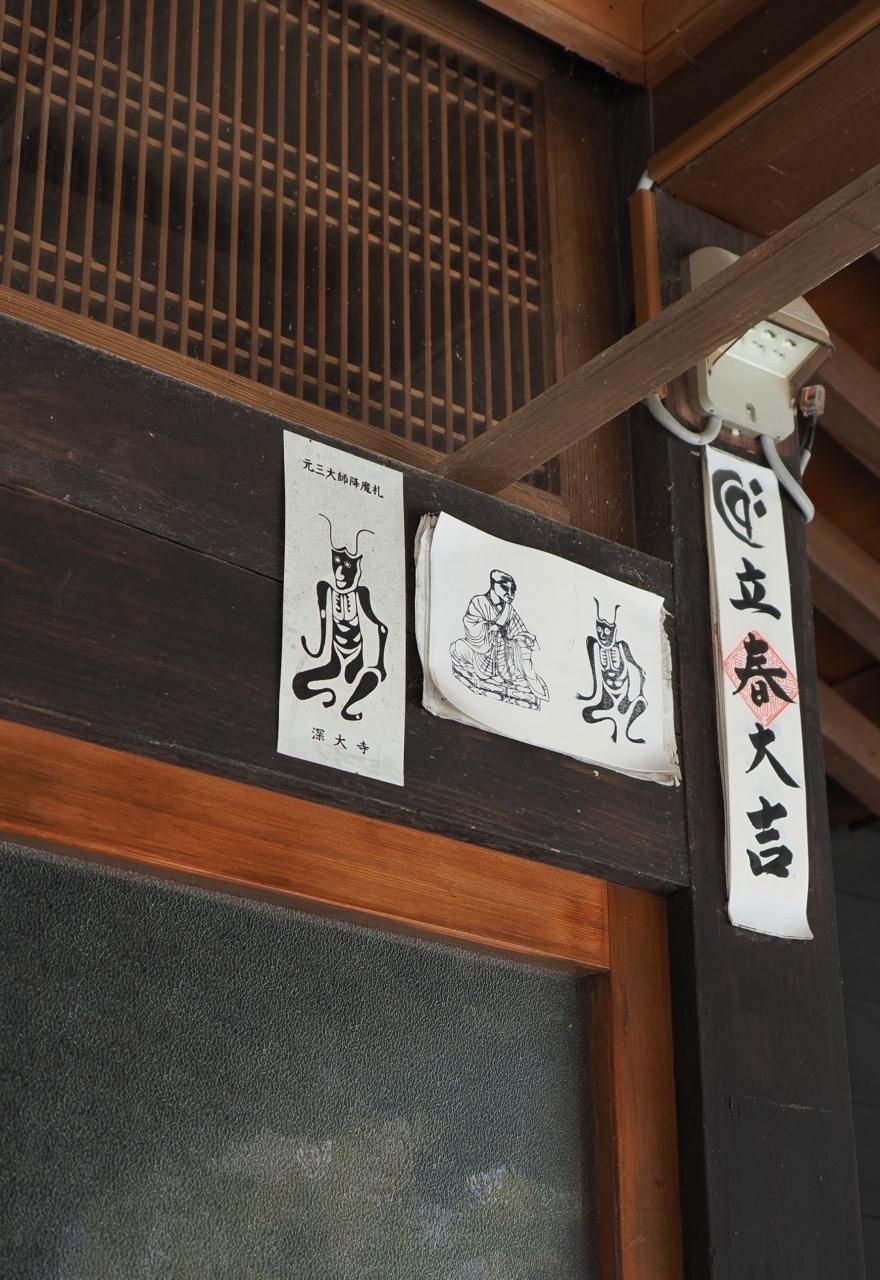 元三大師降魔札
深大寺
立春大吉